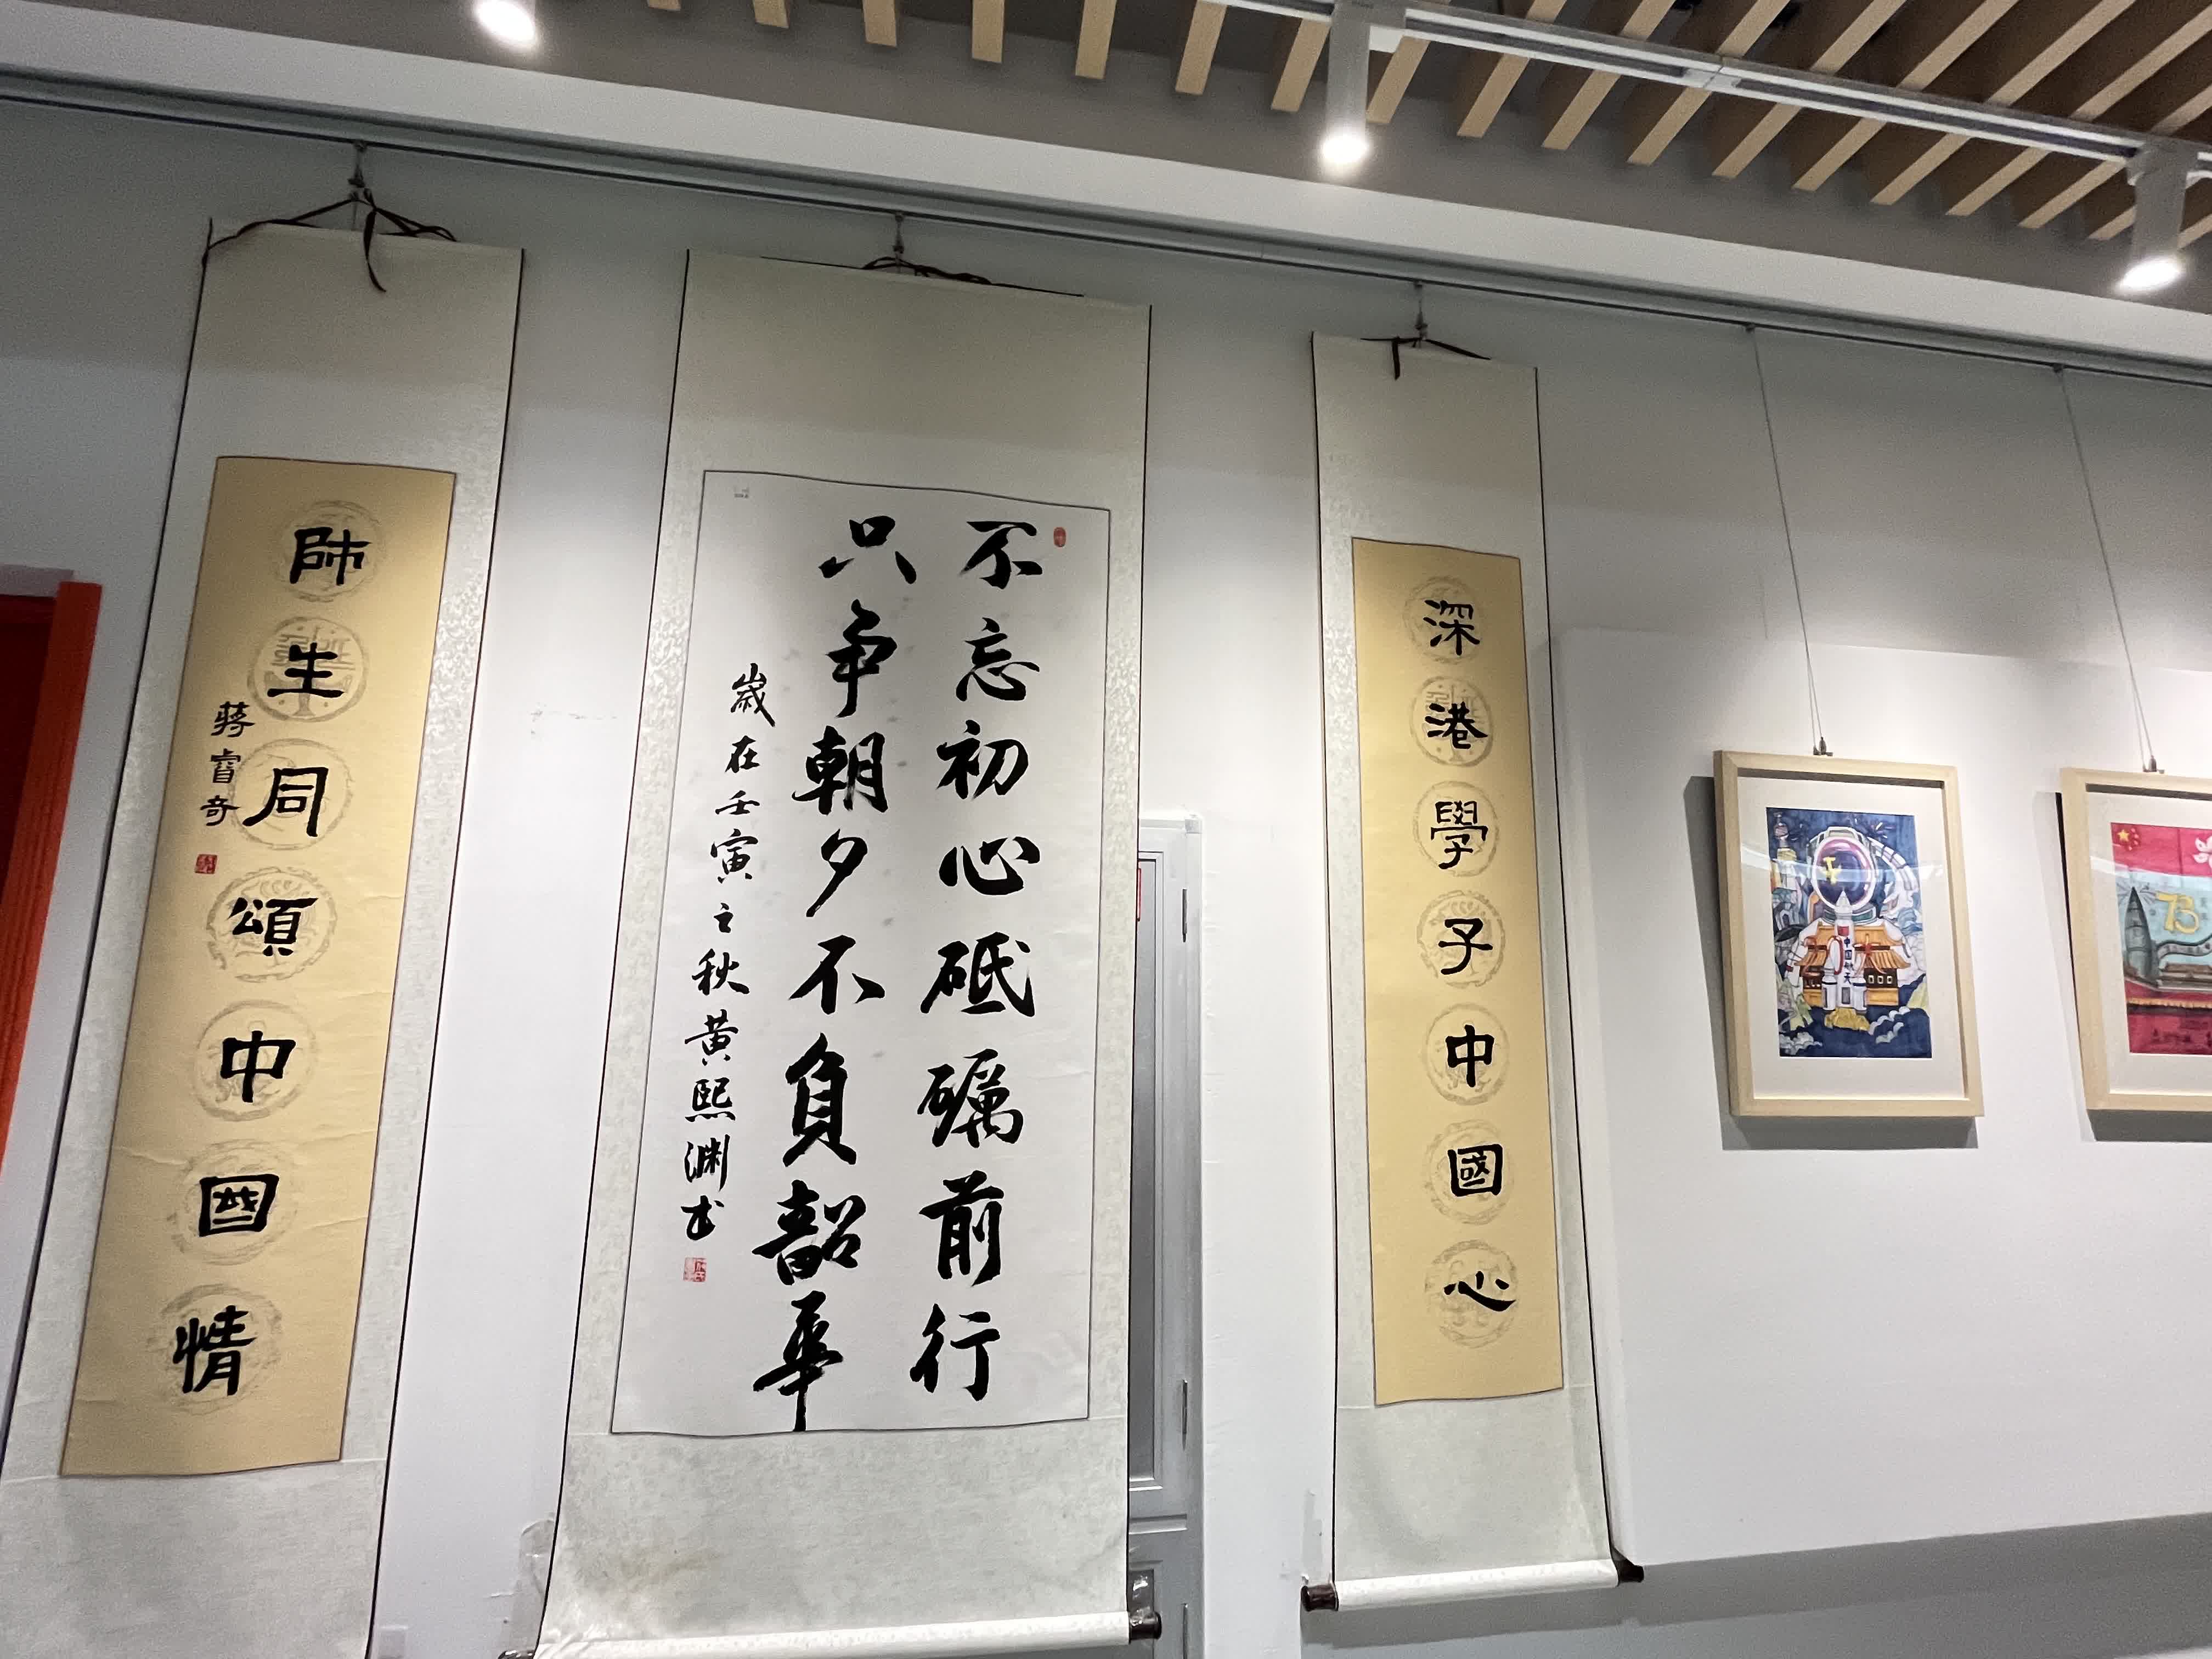 深港學子中國心
不忘初心砥礪前行
只争朝夕不負韶華
歲在壬寅之秋黄熙渊书
師生同頌中國情
蔣睿奇
中国航天
73